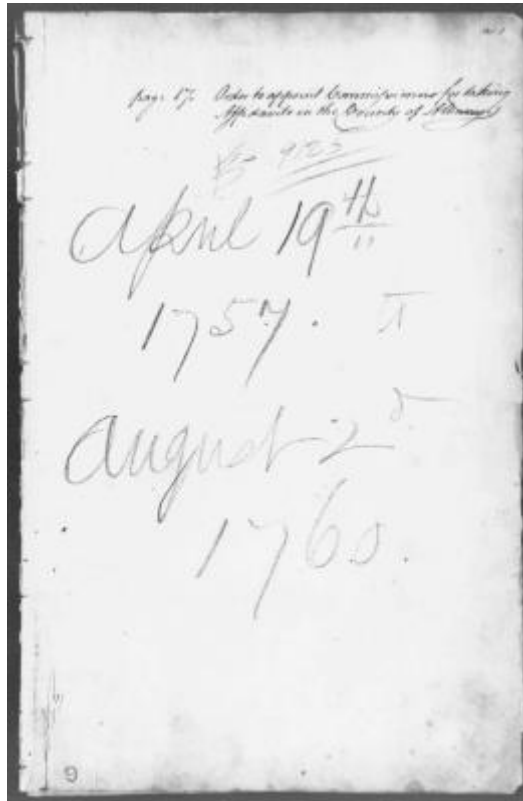 page 17. Order to appoint Commissioners for taking
Affidavits in the County of Albany
9123
April 19th
1757.
August 2d
1760.
9